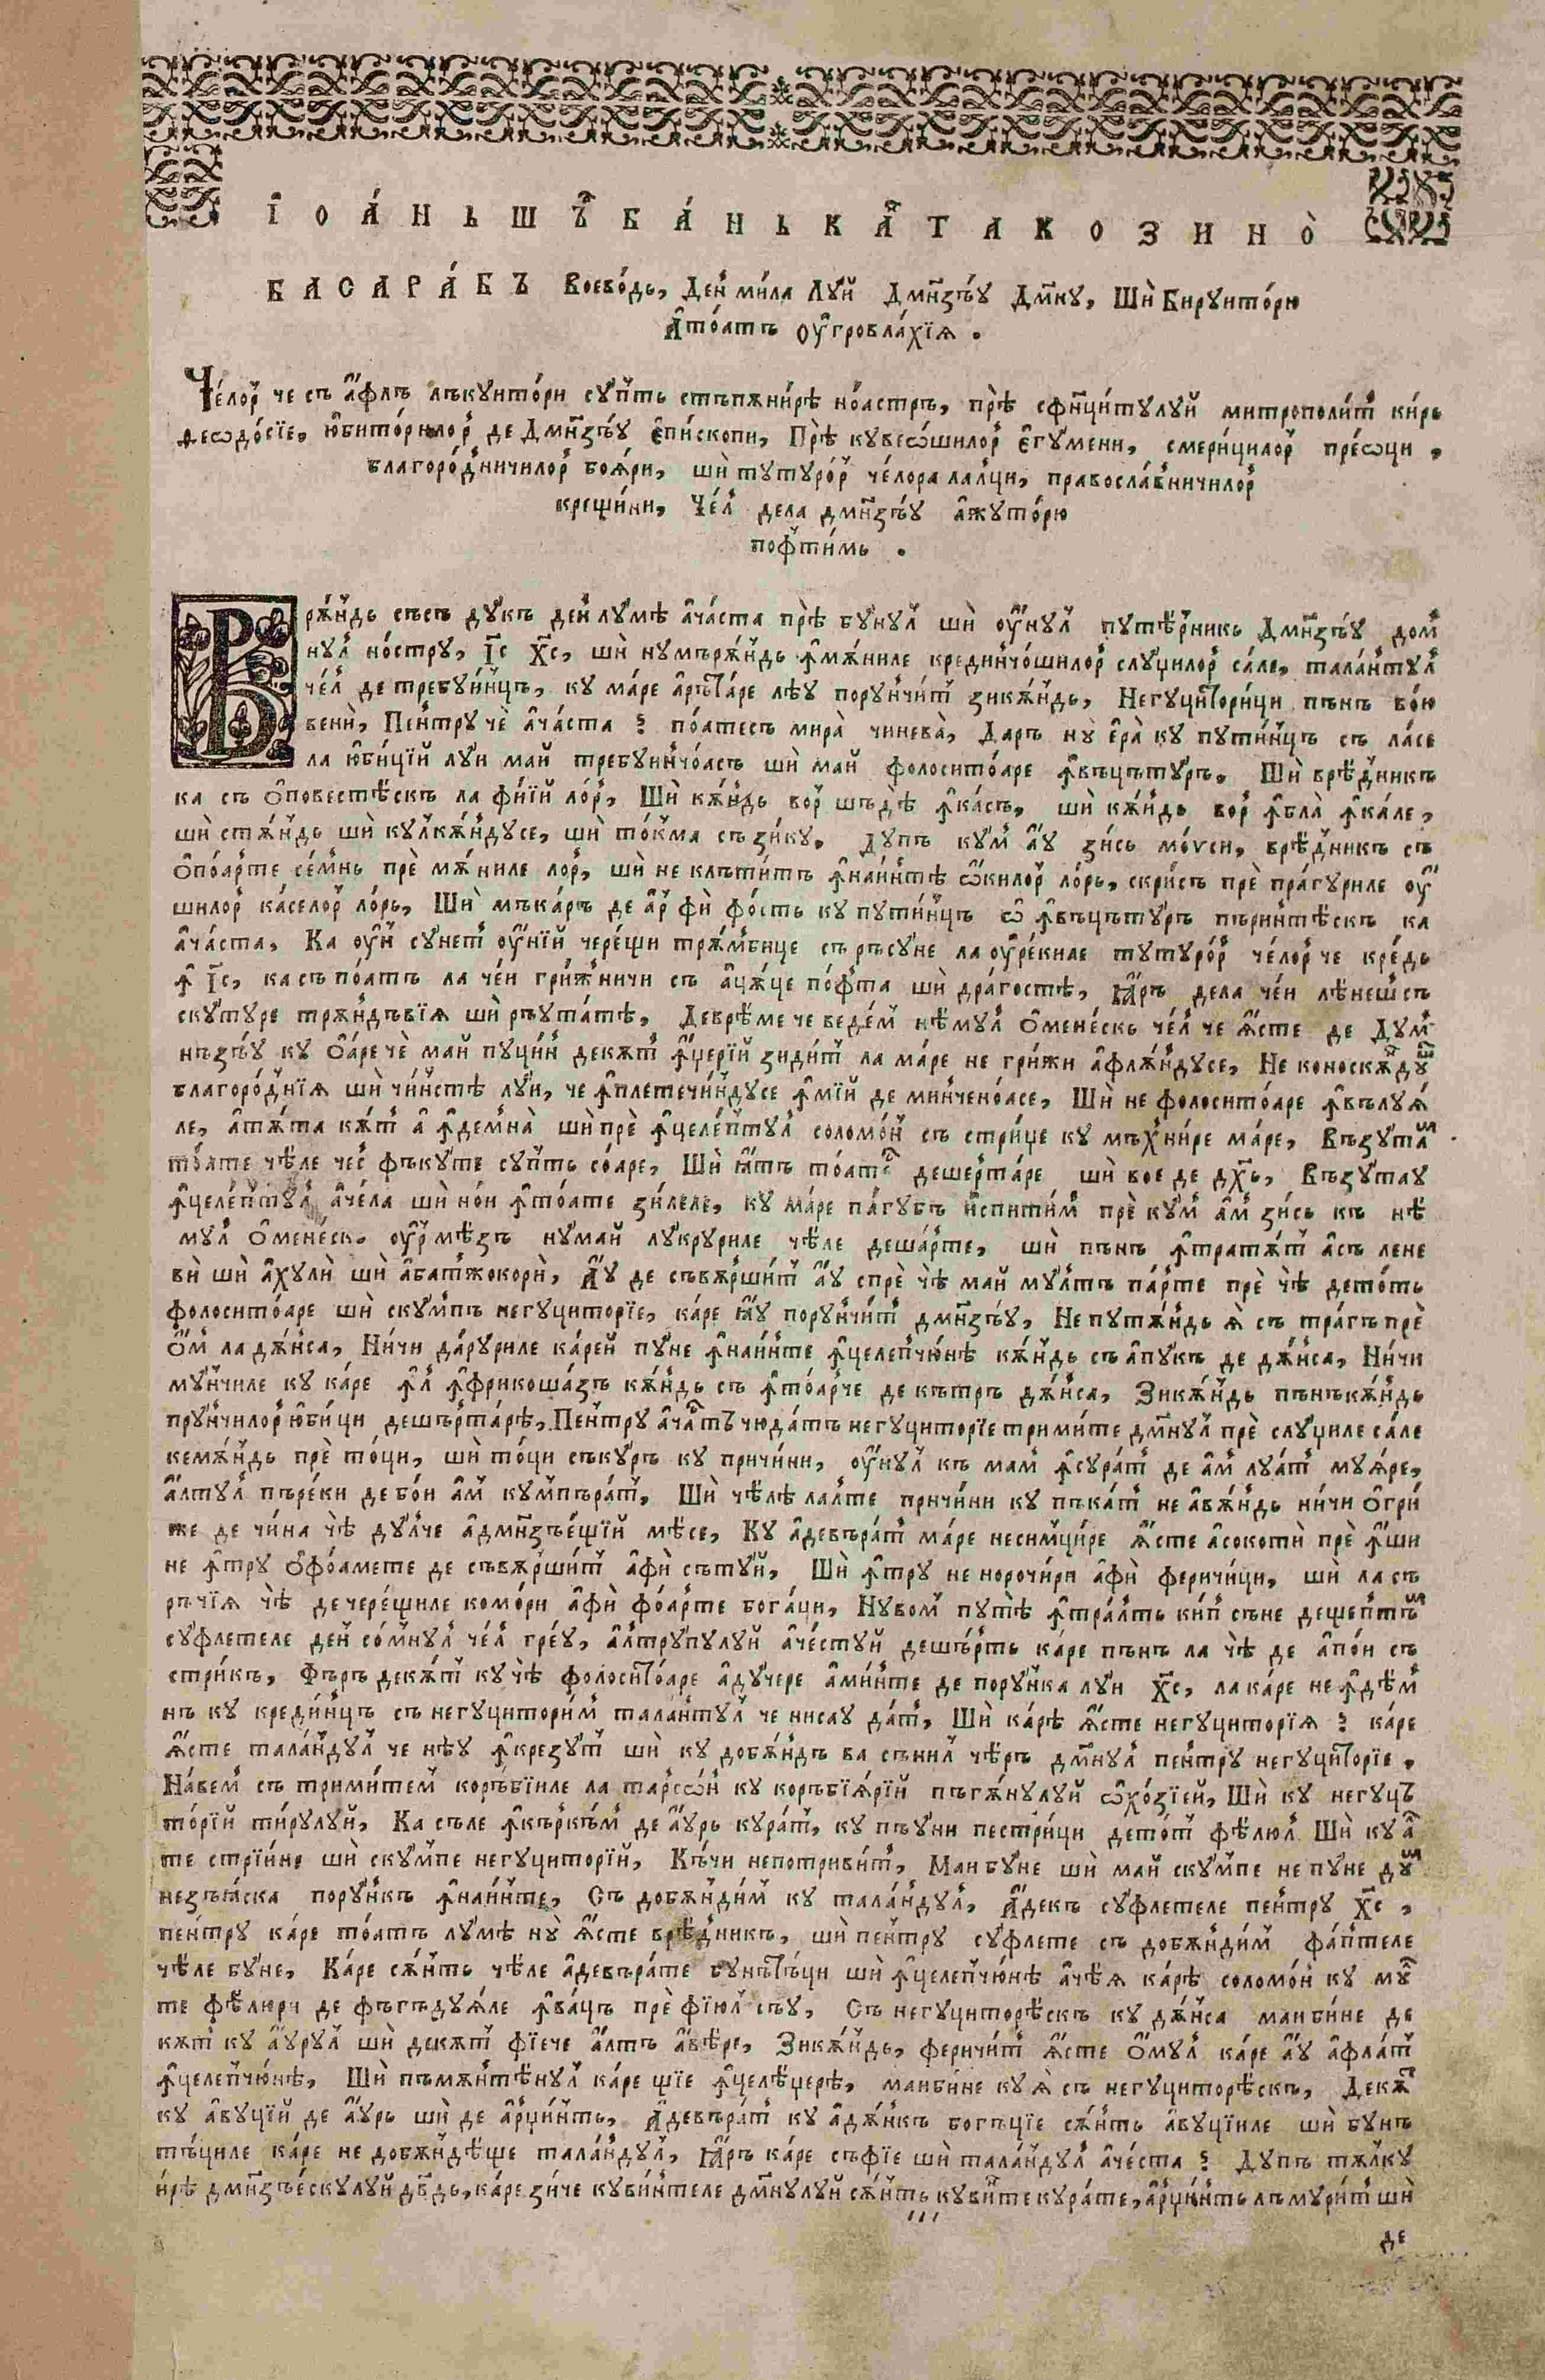 І҆ОА́НЬ ШЪ҆РБА́НЬ КА҆НТАКОЗИНО̀
БАСАРА́БЪ Воево́дь, Де́н ми́ла Лꙋ́й Дм҃нꙁѣ́ꙋ Дм҃нꙋ, Шѝ Бирꙋито́рю
А҆то́атъ ѹ҆гровла́хїѧ .
Че́лор че съ а҆́флъ лъкꙋито́ри сꙋ́пть стъпжни́рѣ но́астръ, прѣ̀ сфн҃ци́тꙋлꙋй митрополи́т ки́рь
ѳеѡдо́сїе, ю҆бито́рилор де Дм҃нꙁѣ́ꙋ Е҆пи́скопи, Прѣ̀ кꙋвеѡ́шилор Е҆гꙋ́мени, смери́цилор пре́ѡци ,
благоро́дничилор боѧ́ри, шѝ тꙋтꙋро́р че́лора ла́лци, правосла́вничилор
крещи́ни, Че́л дела дм҃нꙁѣ́ꙋ а҆жꙋто́рю
пофти́мь .
Врѫ́ндь съсъ дꙋ́къ ден лꙋ́мѣ а҆ча́ста прѣ̀ бꙋ́нꙋл шѝ ѹ҆́нꙋл пꙋтѣ́рникь Дм҃нꙁѣ́ꙋ дом
нꙋл но́стрꙋ, І҃с Х҃с, шѝ нꙋмърѫ́ндь ꙟ҆мѫ́ниле крединчо́шилор слꙋ́ѱилор са́ле, тала́нтꙋл
че́л де требꙋи́нцъ, кꙋ ма́ре а҆ръта́ре лѣ́ꙋ порꙋнчи́т ꙁикѫ́ндь, Негꙋциторици пънъ во́ю
венѝ, Пе́нтрꙋ чѐ а҆ча́ста ? по́атесъ мира̀ чинева̀, Даръ нꙋ̀ е҆ра̀ кꙋ пꙋти́нцъ съ ла́се
ла ю҆би́ций лꙋи май требꙋинчо́асъ шѝ май фолосито́аре ꙟ҆въцътꙋ́ръ, Шѝ врѣ́дникъ
ка съ ѻ҆повестѣ́скъ ла фи́їй ло́р, Шѝ кѫ́ндь вор шъдѣ̀ ꙟ҆ка́съ, шѝ кѫ́ндь вор ꙟ҆бла̀ ꙟ҆ка́ле,
шѝ стѫ́ндь шѝ кꙋлкѫ́ндꙋсе, шѝ то́кма съ ꙁи́кꙋ, Дꙋпъ кꙋ́м а҆́ꙋ ꙁи́сь мо́ѵси, врѣ́дникъ съ
ѻ҆по́арте се́мнь прѐ мѫ́ниле лор, шѝ не клъти́тъ ꙟ҆наи́нтѣ ѡ҆́килор ло́рь, скри́съ прѐ пра́гꙋриле ѹ҆́
шилор ка́селор ло́рь, Шѝ мъка́ръ де а҆́р фѝ фо́сть кꙋ пꙋти́нцъ ѡ҆ ꙟ҆въцътꙋ́ръ пъринтѣ́скъ ка
а҆ча́ста, Ка ѹ҆́н сꙋ́нет ѹ҆́нїй чере́щи трѫ́мбице съ ръсꙋ́не ла ѹ҆ре́киле тꙋтꙋро́р че́лор че кре́дь
ꙟ҆ І҃с, ка съ по́атъ ла че́и гри́жничи съ а҆цѫ́це по́фта шѝ дра́гостѣ, Ꙗ҆ръ дела че́и лѣ́неш съ
скꙋ́тꙋре трѫ́ндъвїѧ шѝ ръꙋта́тѣ, Деврѣ́ме че веде́м нѣ́мꙋл ѻ҆мене́скь че́л че ꙗ҆́сте де Дꙋм
неꙁѣ́ꙋ кꙋ ѻ҆а́ре чѐ май пꙋци́н декѫт ꙟ҆́џерїй ꙁиди́т ла ма́ре не гри́жи а҆флѫ́ндꙋсе, Не коноскѫ́ндꙋ
благоро́днїѧ шѝ чи́нстѣ лꙋи, че ꙟ҆плетечи́ндꙋсе ꙟ҆мїй де минчено́асе, Шѝ не фолосито́аре ꙟ҆вълꙋѧ́
ле, а҆тѫ́та кѫ́т а҆ ꙟ҆демна̀ шѝ прѐ ꙟ҆целе́птꙋл соломо́н съ стри́ѱе кꙋ мъхни́ре ма́ре, Въꙁꙋта́м
то́ате чѣ́ле чес фъкꙋте сꙋ́пть со́аре, Шѝ ꙗ҆́тъ то́ате дешерта́ре шѝ вое де дх҃ь, Въꙁꙋтаꙋ
ꙟ҆целе́птꙋл а҆че́ла шѝ нои ꙟ҆то́ате ꙁи́леле, кꙋ ма́ре па́гꙋбъ и҆спити́м прѐ кꙋ́м а҆́м ꙁи́сь къ нѣ́
мꙋл ѻ҆мене́ск. ѹ҆рмѣ́ꙁъ нꙋмай лꙋкрꙋриле чѣ́ле деша́рте, шѝ пънъ ꙟ҆тратѫ́т а҆съ лене
вѝ шѝ а҆хꙋлѝ шѝ а҆батжокорѝ, А҆́ꙋ де съвѫ́ршит а҆́ꙋ спрѐ чѣ̀ май мꙋ́лтъ па́рте прѐ чѣ̀ дето́ть
фолосито́аре шѝ скꙋ́мпъ негꙋциторїе, ка́ре ꙗ҆́ꙋ порꙋнчи́т дм҃нꙁѣ́ꙋ, Не пꙋтѫ́ндь ѧ̀ съ тра́гъ прѐ
ѻ҆́м ла дѫ́нса, Ни́чи да́рꙋриле ка́рей пꙋне ꙟ҆наи́нте ꙟ҆целепчю́нѣ кѫ́ндь съ а҆пꙋкъ де дѫ́нса, Ни́чи
мꙋ́нчиле кꙋ ка́ре ꙟ҆л ꙟ҆фрикоша́ꙁъ кѫ́ндь съ ꙟ҆то́арче де кътръ дѫ́нса, Зикѫ́ндь пънъкѫ́ндь
прꙋ́нчилор ю҆би́ци дешърта́рѣ, Пе́нтрꙋ а҆ча́стъ чюда́тъ негꙋциторїе трими́те дм҃нꙋл прѐ слꙋ́ѱиле са́ле
кемѫ́ндь прѐ то́ци, шѝ то́ци съкꙋ́ръ кꙋ причи́ни, ѹ҆́нꙋл къ мам ꙟ҆сꙋра́т де а҆́м лꙋа́т мꙋѧ́ре,
а҆́лтꙋл пъре́ки де бо́и а҆́м кꙋмпъра́т, Шѝ чѣ́лѣ ла́лте причи́ни кꙋ пъка́т не а҆вѫ́ндь ни́чи ѻ҆гри́
же де чи́на чѣ̀ дꙋ́лче а҆дмн҃ꙁъе́щїй мѣ́се, Кꙋ а҆девъра́т ма́ре несимци́ре ꙗ҆́сте а҆сокотѝ прѐ ꙟ҆́ши
не ꙟ҆трꙋ ѻ҆фо́амете де съвѫ́ршит а҆фѝ сътꙋ́й, Шѝ ꙟ҆трꙋ не норочи́ри а҆фѝ феричи́ци, шѝ ла съ
ръчїѧ чѣ̀ де чере́щиле комо́ри а҆фѝ фо́арте бога́ци, Нꙋвом пꙋтѣ̀ ꙟ҆тра́лть ки́п съне деще́птъм
сꙋ́флетеле ден со́мнꙋл че́л гре́ꙋ, а҆лтрꙋ́пꙋлꙋй а҆че́стꙋй дешъ́рть ка́ре пънъ ла чѣ̀ де а҆по́и съ
стри́къ, Фъръ декѫ́т кꙋ чѣ̀ фолосито́аре а҆дꙋ́чере а҆ми́нте де порꙋ́нка лꙋи Х҃с, ла ка́ре не ꙟ҆дѣ́м
нъ кꙋ креди́нцъ съ негꙋцитори́м тала́нтꙋл че нисаꙋ да́т, Шѝ ка́рѣ ꙗ҆́сте негꙋциторїѧ ? ка́ре
ꙗ҆́сте тала́ндꙋл че нѣ́ꙋ ꙟ҆креꙁꙋ́т шѝ кꙋ добѫ́ндъ ва съ нил чѣ́ръ дм҃нꙋл пе́нтрꙋ негꙋциторїе .
На́вем съ трими́тем коръ́бїиле ла тарсѡ́н кꙋ коръбїѧ́рїй пъгѫ́нꙋлꙋй ѡ҆хо́ꙁїей, Шѝ кꙋ негꙋцъ
то́рїй ти́рꙋлꙋй, Ка съле ꙟ҆къркъ́м де а҆́ꙋрь кꙋра́т, кꙋ пъꙋ́ни пестри́ци дето́т фѣ́люл Шѝ кꙋ а҆́л
те стрїи́не шѝ скꙋ́мпе негꙋциторїй, Къ́чи непотриви́т, Май бꙋ́не шѝ май скꙋ́мпе не пꙋ́не дꙋм
неꙁъꙗ́ска порꙋ́нкъ ꙟ҆наи́нте, Съ добѫнди́м кꙋ тала́ндꙋл, А҆́декъ сꙋ́флетеле пе́нтрꙋ Х҃с ,
пе́нтрꙋ ка́ре то́атъ лꙋ́мѣ нꙋ̀ ꙗ҆́сте врѣ́дникъ, шѝ пе́нтрꙋ сꙋ́флете съ добѫнди́м фа́птеле
чѣ́ле бꙋ́не, Ка́ре сѫ́нть чѣ́ле а҆девъра́те бꙋнътъ́ци шѝ ꙟ҆целепчю́нѣ а҆чѣ́ѧ ка́рѣ соломо́н кꙋ мꙋ́л
те фѣ́люри де фъгъдꙋѧ́ле ꙟ҆ва́цъ прѐ фїю́л съ́ꙋ, Съ негꙋциторѣ́скъ кꙋ дѫ́нса май би́не де
кѫт кꙋ а҆́ꙋрꙋл шѝ декѫт фїече а҆́лтъ а҆вѣ́ре, Зикѫ́ндь, феричи́т ꙗ҆́сте ѻ҆́мꙋл ка́ре а҆́ꙋ а҆фла́т
ꙟ҆целепчю́нѣ, Шѝ пъмѫнтѣ́нꙋл ка́ре щїе ꙟ҆целѣ́џерѣ, май би́не кꙋ ѧ̀ съ негꙋциторѣ́скъ, Декѫ́т
кꙋ а҆вꙋцїй де а҆́ꙋрь шѝ де а҆рџи́нть, А҆девъра́т кꙋ а҆дѫ́нкъ богъцїе сѫ́нть а҆вꙋцїиле шѝ бꙋнъ
тъ́циле ка́ре не добѫндѣ́ще тала́ндꙋл, Ꙗ҆ръ ка́ре съфїе шѝ тала́ндꙋл а҆че́ста ? Дꙋпъ тѫлкꙋ
и́рѣ дмн҃ꙁъе́скꙋлꙋй дв҃дь, ка́ре ꙁи́че кꙋви́нтеле дм҃нꙋлꙋй сѫ́нть кꙋви́нте кꙋра́те, а҆рџи́нть лъмꙋри́т шѝ
де